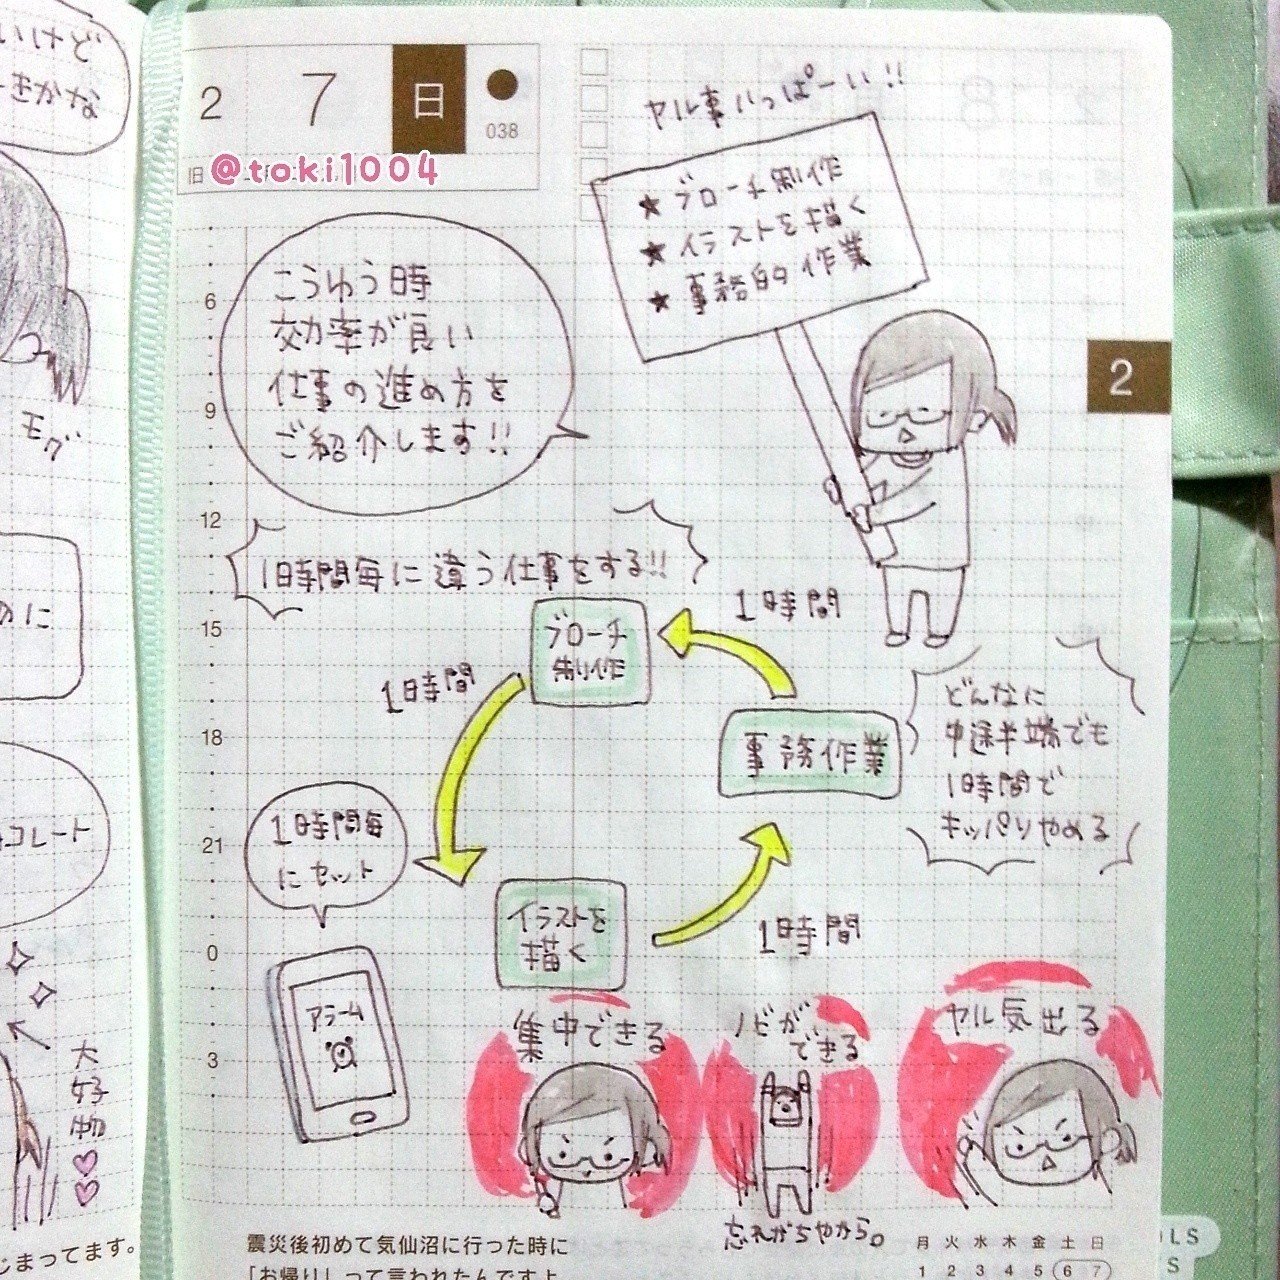 いけど
きかな
モグ
のに
コレート
大好物
じまってます。
2 7 日
038
旧
@toki1004
ヤル事いっぱーい!!
★ ブローチ制作
★ イラストを描く
★ 事務的作業
こうゆう時
効率が良い
仕事の進め方を
ご紹介します!!
2
6
9
12
15
18
21
0
3
1時間毎に違う仕事をする!!
1時間
ブローチ
制作
1時間
事務作業
どんなに
中途半端でも
1時間で
キッパリやめる
1時間毎
にセット
イラストを
描く
1時間
アラーム
集中できる
ノビが
できる
ヤル気出る
忘れがちやから。
震災後初めて気仙沼に行った時に
「お帰り」って言われたんですよ
月 火 水 木 金 土 日
1 2 3 4 5 6 7
OLS
S